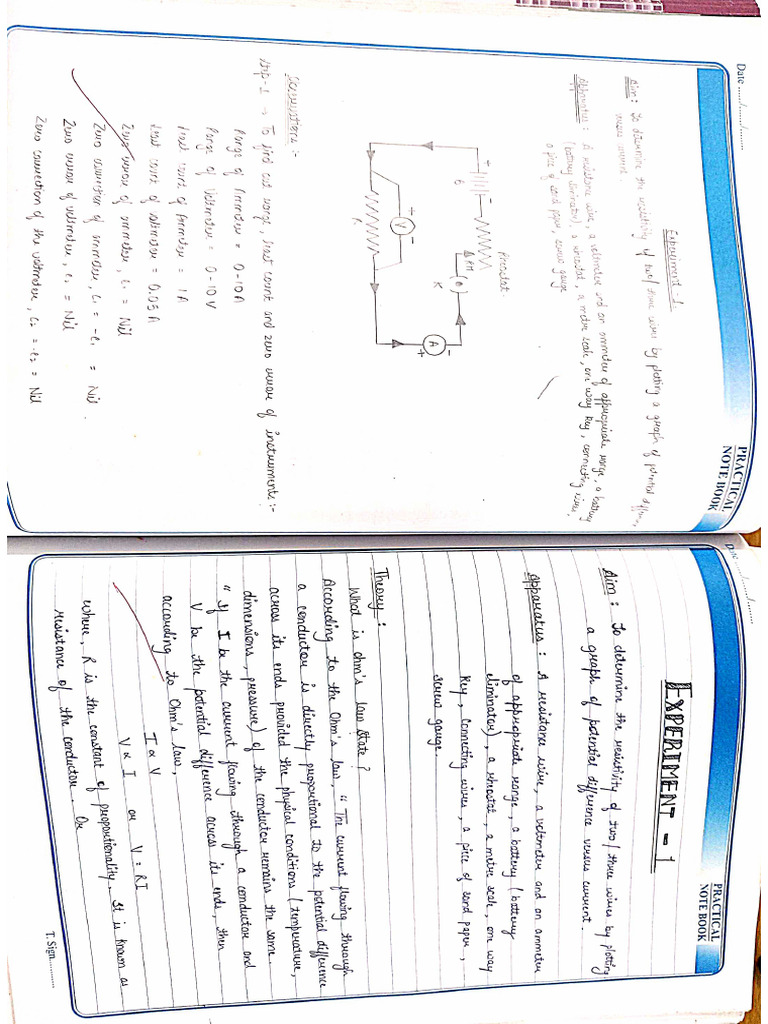 Date ...../...../.........
PRACTICAL
NOTE BOOK
Experiment - 1.
Aim : To determine the resistivity of two/three wires by plotting a graph of potential difference
versus current.
Apparatus : A resistance wire, a voltmeter and an ammeter of appropriate range, a battery
(battery eliminator), a rheostat, a metre scale, one way key, connecting wires,
a piece of sand paper, screw gauge
Rheostat
K
A
V
+
-
Observations :-
step-1 → To find out range, least count and zero error of instruments :-
Range of Ammeter = 0-10A
Range of Voltmeter = 0-10V
least count of Ammeter = 1A
least count of voltmeter = 0.05 A
Zero error of ammeter, e₁ = Nil
Zero correction of ammeter, c₁ = -e₁ = Nil.
Zero error of voltmeter, e₂ = Nil
Zero correction of the voltmeter, c₂ = -e₂ = Nil
Date ...../...../.........
PRACTICAL
NOTE BOOK
EXPERIMENT - 1
Aim : To determine the resistivity of two/three wires by plotting
a graph of potential difference versus current.
Apparatus : A resistance wire, a voltmeter and an ammeter
of appropriate range, a battery (battery
eliminator), a rheostat, a metre scale, one way
Key, Connecting wires, a pice of sand paper,
screw gauge.
Theory :
What is ohm's law state ?
According to the Ohm's law, " The current flowing through
a conductor is directly proportional to the potential difference
across its ends provided the physical conditions (temperature,
dimensions, pressure) of the conductor remains the same.
" If I be the current flowing through a conductor and
V be the potential difference across its ends, then
according to Ohm's law,
I ∝ V
V ∝ I or V = RI
where, R is the constant of proportionality. It is known as
resistance of the conductor. Or
T. Sign..........